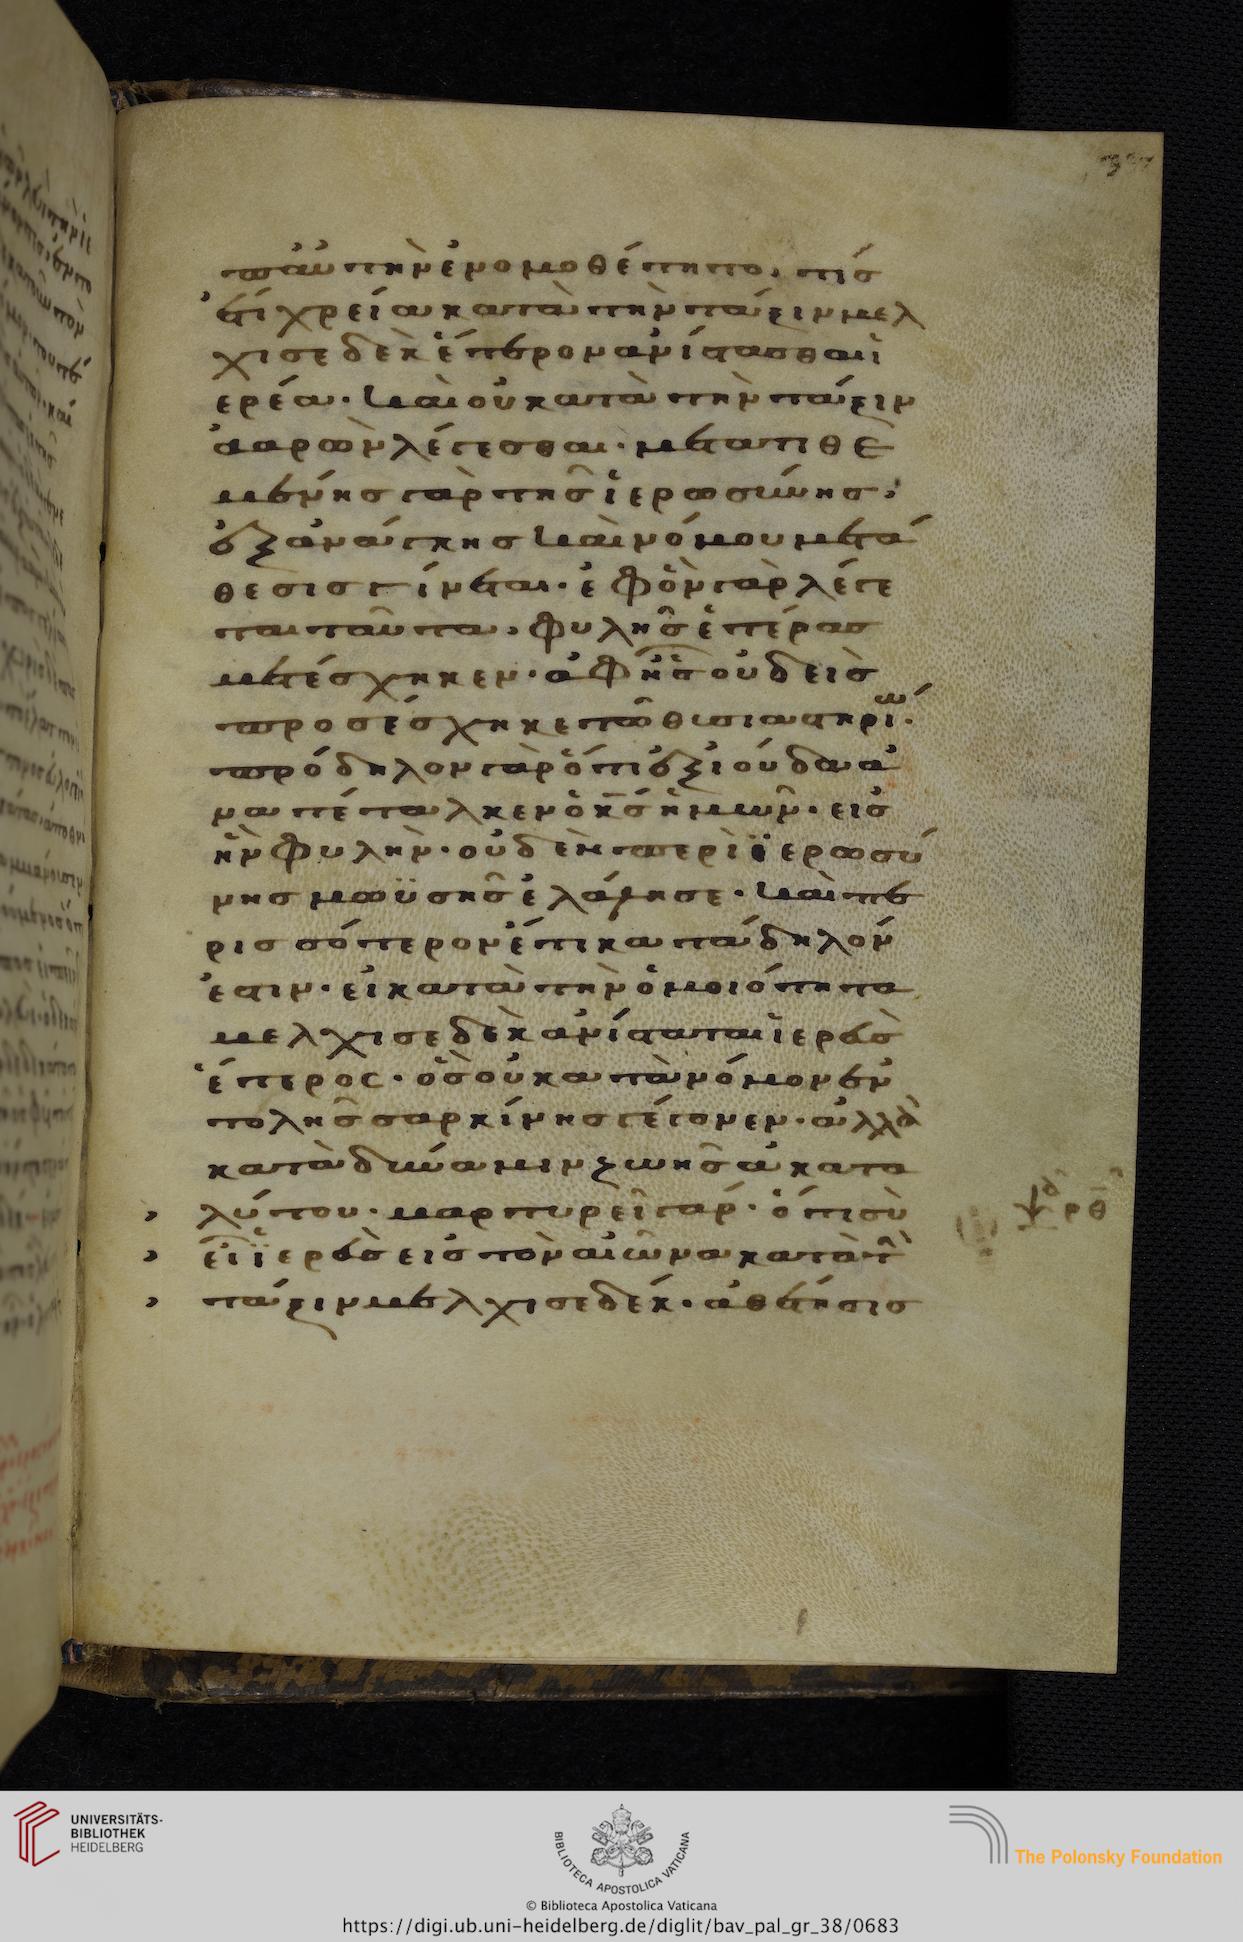 π αὐτὴν ἐνομοθέτητο, τίς
ἔτι χρεία κατὰ τὴν τάξιν μελ
χισεδὲκ ἕτερον ἀνίστασθαι ἱ
ερέα · καὶ οὐ κατὰ τὴν τάξιν
ἀαρὼν λέγεσθαι · μετατιθε
μένης γὰρ τῆς ἱερωσύνης,
ἐξ ἀνάγκης καὶ νόμου μετά
θεσις γίνεται · ἐφ ὃν γὰρ λέγε
ται ταῦτα, φυλῆς ἑτέρας
μετέσχηκεν · ἀφ ἧς οὐδεὶς
προσέσχηκε τῶ θυσιαστηρίω ·
πρόδηλον γὰρ ὅτι ἐξ ἰούδα ἀ
νατέταλκεν ὁ κ̅ς̅ ἡμῶν · εἰς
ἣν φυλὴν · οὐδὲν περὶ ἱερωσύ
νης μωϋσῆς ἐλάλησε · καὶ πε
ρισσότερον ἔτι κατάδηλόν
ἐστιν · εἰ κατὰ τὴν ὁμοιότητα
μελχισεδὲκ ἀνίσταται ἱερεὺς
ἕτερος · ὃς οὐ κατὰ νόμον ἐν
τολῆς σαρκίνης γέγονεν · ἀλλὰ
κατὰ δύναμιν ζωῆς ἀκατα
λύτου · μαρτυρεῖ γάρ · ὅτι σὺ
εἶ ἱερεὺς εἰς τὸν αἰῶνα κατὰ τὴν
τάξιν μελχισεδέκ · ἀθέτησις
ρθ
UNIVERSITÄTS-
BIBLIOTHEK
HEIDELBERG
BIBLIOTECA APOSTOLICA VATICANA
The Polonsky Foundation
© Biblioteca Apostolica Vaticana
https://digi.ub.uni-heidelberg.de/diglit/bav_pal_gr_38/0683